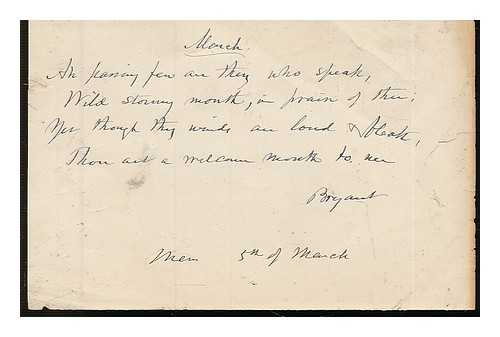 March.
Ah passing few are they who speak,
Wild stormy month, in praise of thee;
Yet though thy winds are loud & bleak,
Thou art a welcome month to me
Bryant
5th of March